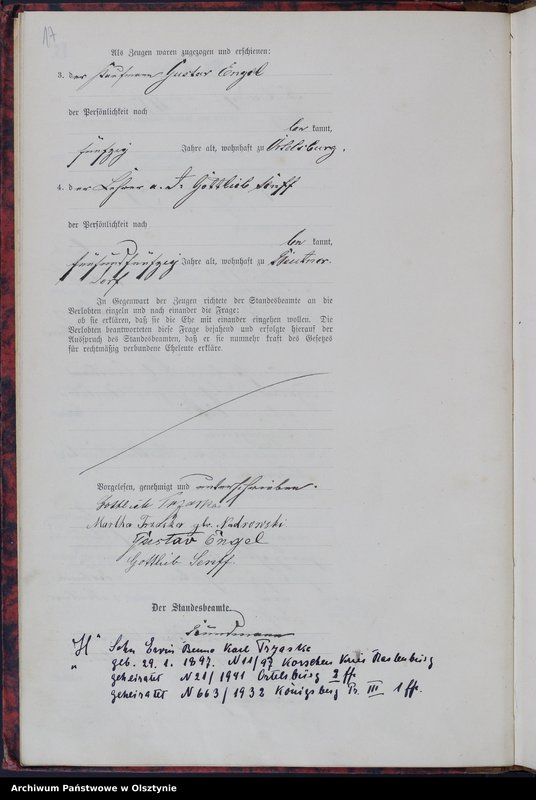 17
Als Zeugen waren zugezogen und erschienen:
3. der Kaufmann Gustav Engel
der Persönlichkeit nach
be kannt,
fünfzig Jahre alt, wohnhaft zu Ortelsburg.
4. der Lehrer a. D. Gottlieb Senff
der Persönlichkeit nach
be kannt,
fünfundfünfzig Jahre alt, wohnhaft zu Beutner-
dorf
In Gegenwart der Zeugen richtete der Standesbeamte an die
Verlobten einzeln und nach einander die Frage:
ob sie erklären, daß sie die Ehe mit einander eingehen wollen. Die
Verlobten beantworteten diese Frage bejahend und erfolgte hierauf der
Ausspruch des Standesbeamten, daß er sie nunmehr kraft des Gesetzes
für rechtmäßig verbundene Eheleute erkläre.
Vorgelesen, genehmigt und unterschrieben.
Gottlieb
Martha geb.
Gustav Engel
Gottlieb Senff.
Der Standesbeamte.
"H" Sohn Erwin Benno Karl Trzaska
" geb. 29. 1. 1897. N 11/97 Korschen Kreis Rastenburg
geheiratet N 21/1941 Ortelsburg 2 ff.
geheiratet N 663/1932 Königsberg Pr. III 1 ff.
Archiwum Państwowe w Olsztynie